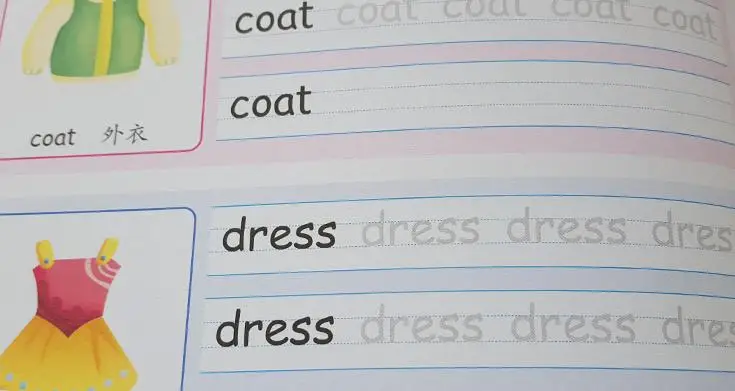 coat coat coat coat coat
coat
coat 外衣
dress dress dress dres
dress dress dress dres